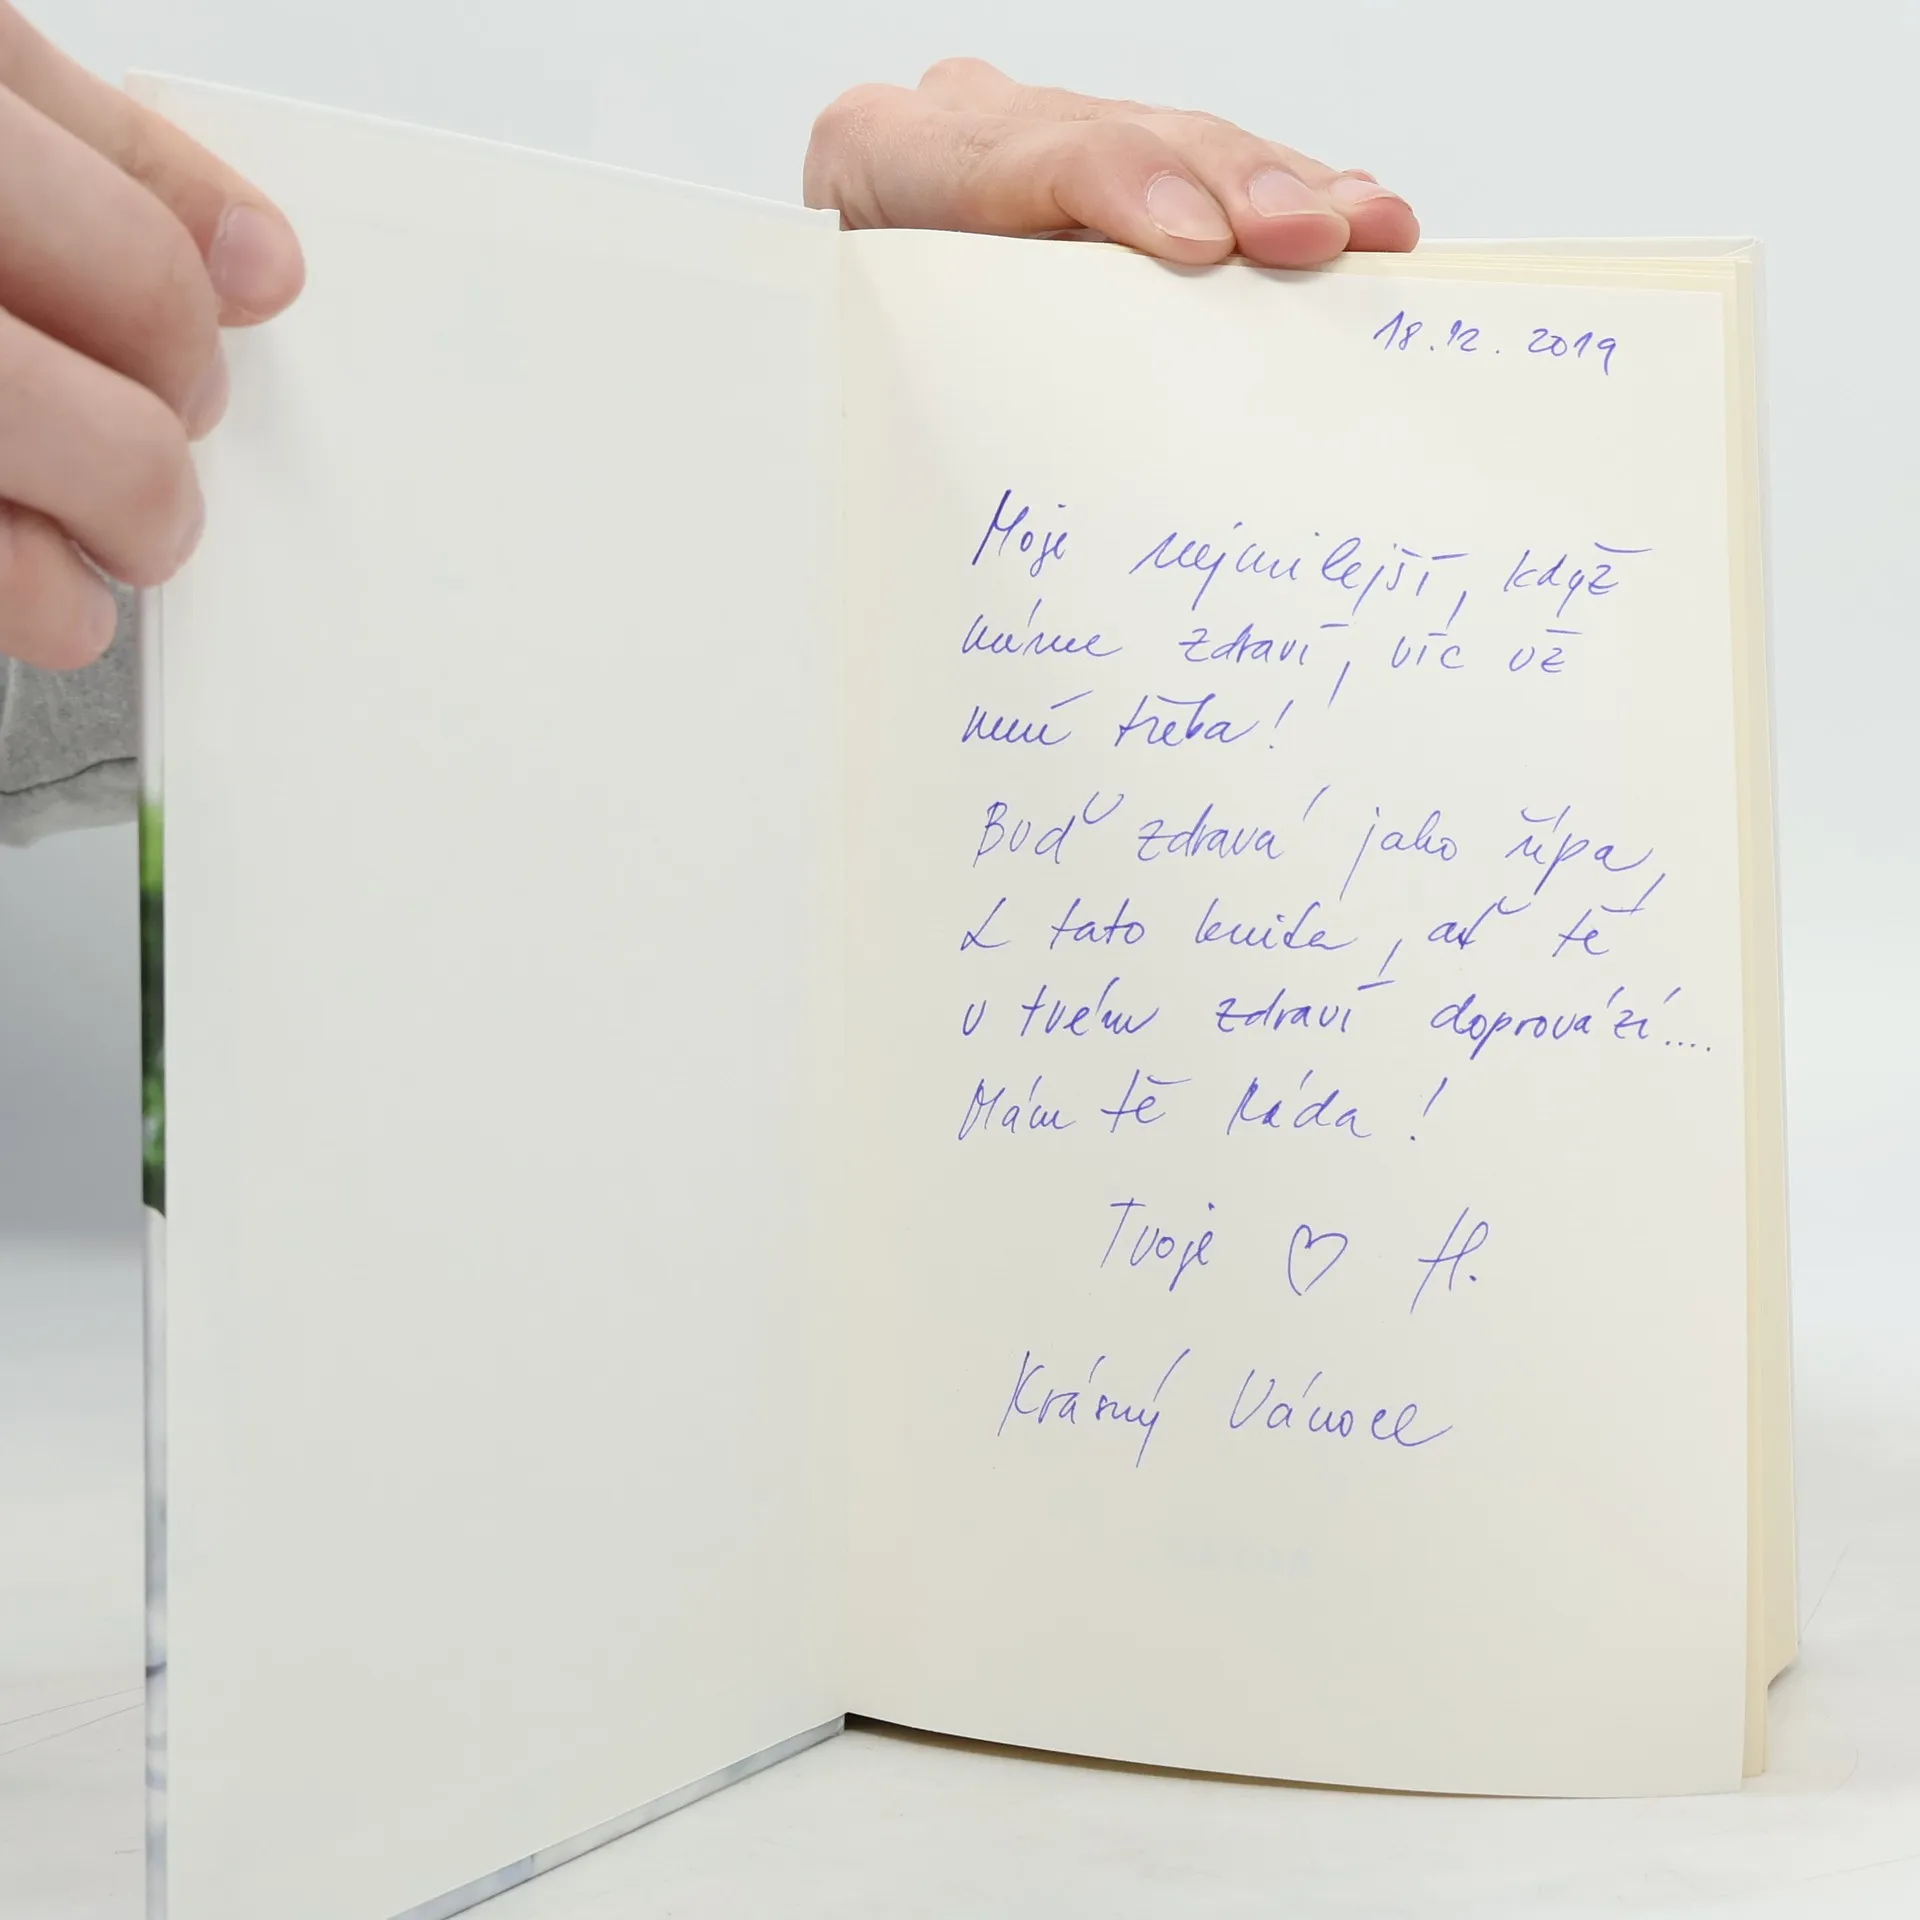 18.12.2019
Moje nejmilejší, když
máme zdraví, víc už
není třeba!
Buď zdravá jako řípa,
A tato kniha, ať tě
v tvém zdraví doprovází....
Mám tě ráda!
Tvoje ♡ H.
Krásný Vánoce